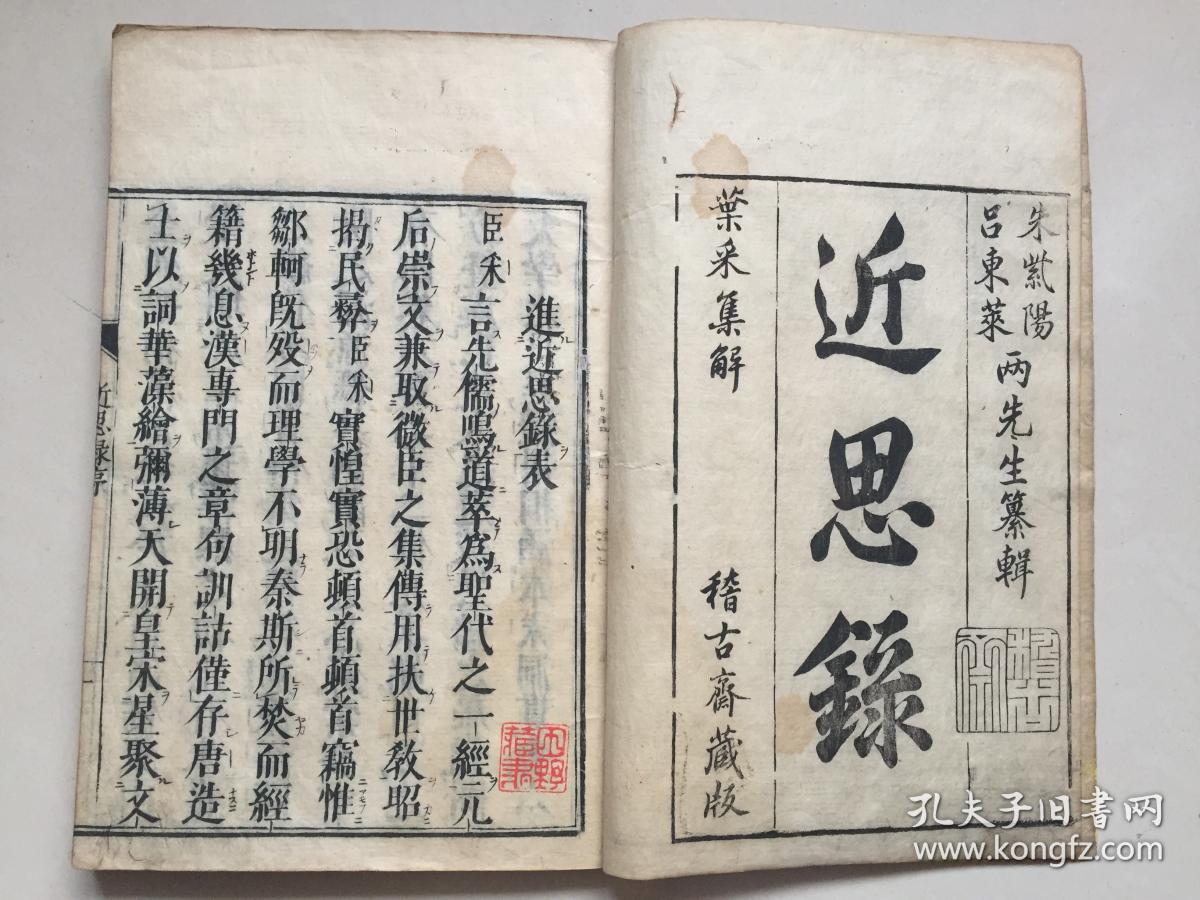 朱紫陽
呂東萊
兩先生纂輯
近思錄
葉采集解
稽古齋藏版
進近思錄表
臣采言先儒鳴道萃為聖代之一經元
后崇文兼取微臣之集傳用扶世教昭
掲民彝臣采實惶實恐頓首頓首竊惟
鄒軻旣歿而理學不明秦斯所焚而經
籍幾息漢專門之章句訓詁僅存唐造
士以詞華藻繪彌薄天開皇宋星聚文
近思錄序
孔夫子旧书网
www.kongfz.com